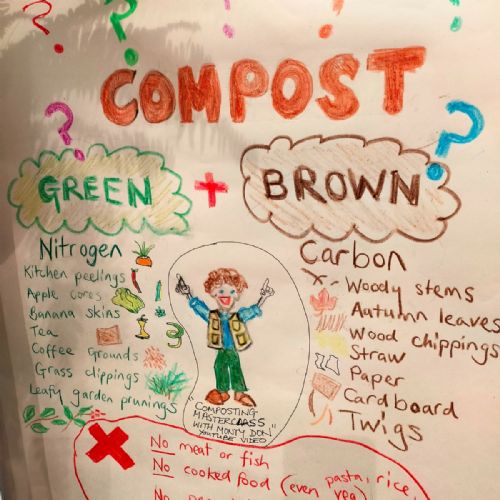 COMPOST
GREEN + BROWN
Nitrogen
Kitchen peelings
Apple cores
Banana skins
Tea
Coffee Grounds
Grass clippings
Leafy garden prunings
Carbon
Woody stems
Autumn leaves
Wood chippings
Straw
Paper
Cardboard
Twigs
"COMPOSTING
MASTERCLASS
WITH MONTY DON"
YOUTUBE VIDEO
No meat or fish
No cooked food (even pasta, rice,
veg)
No